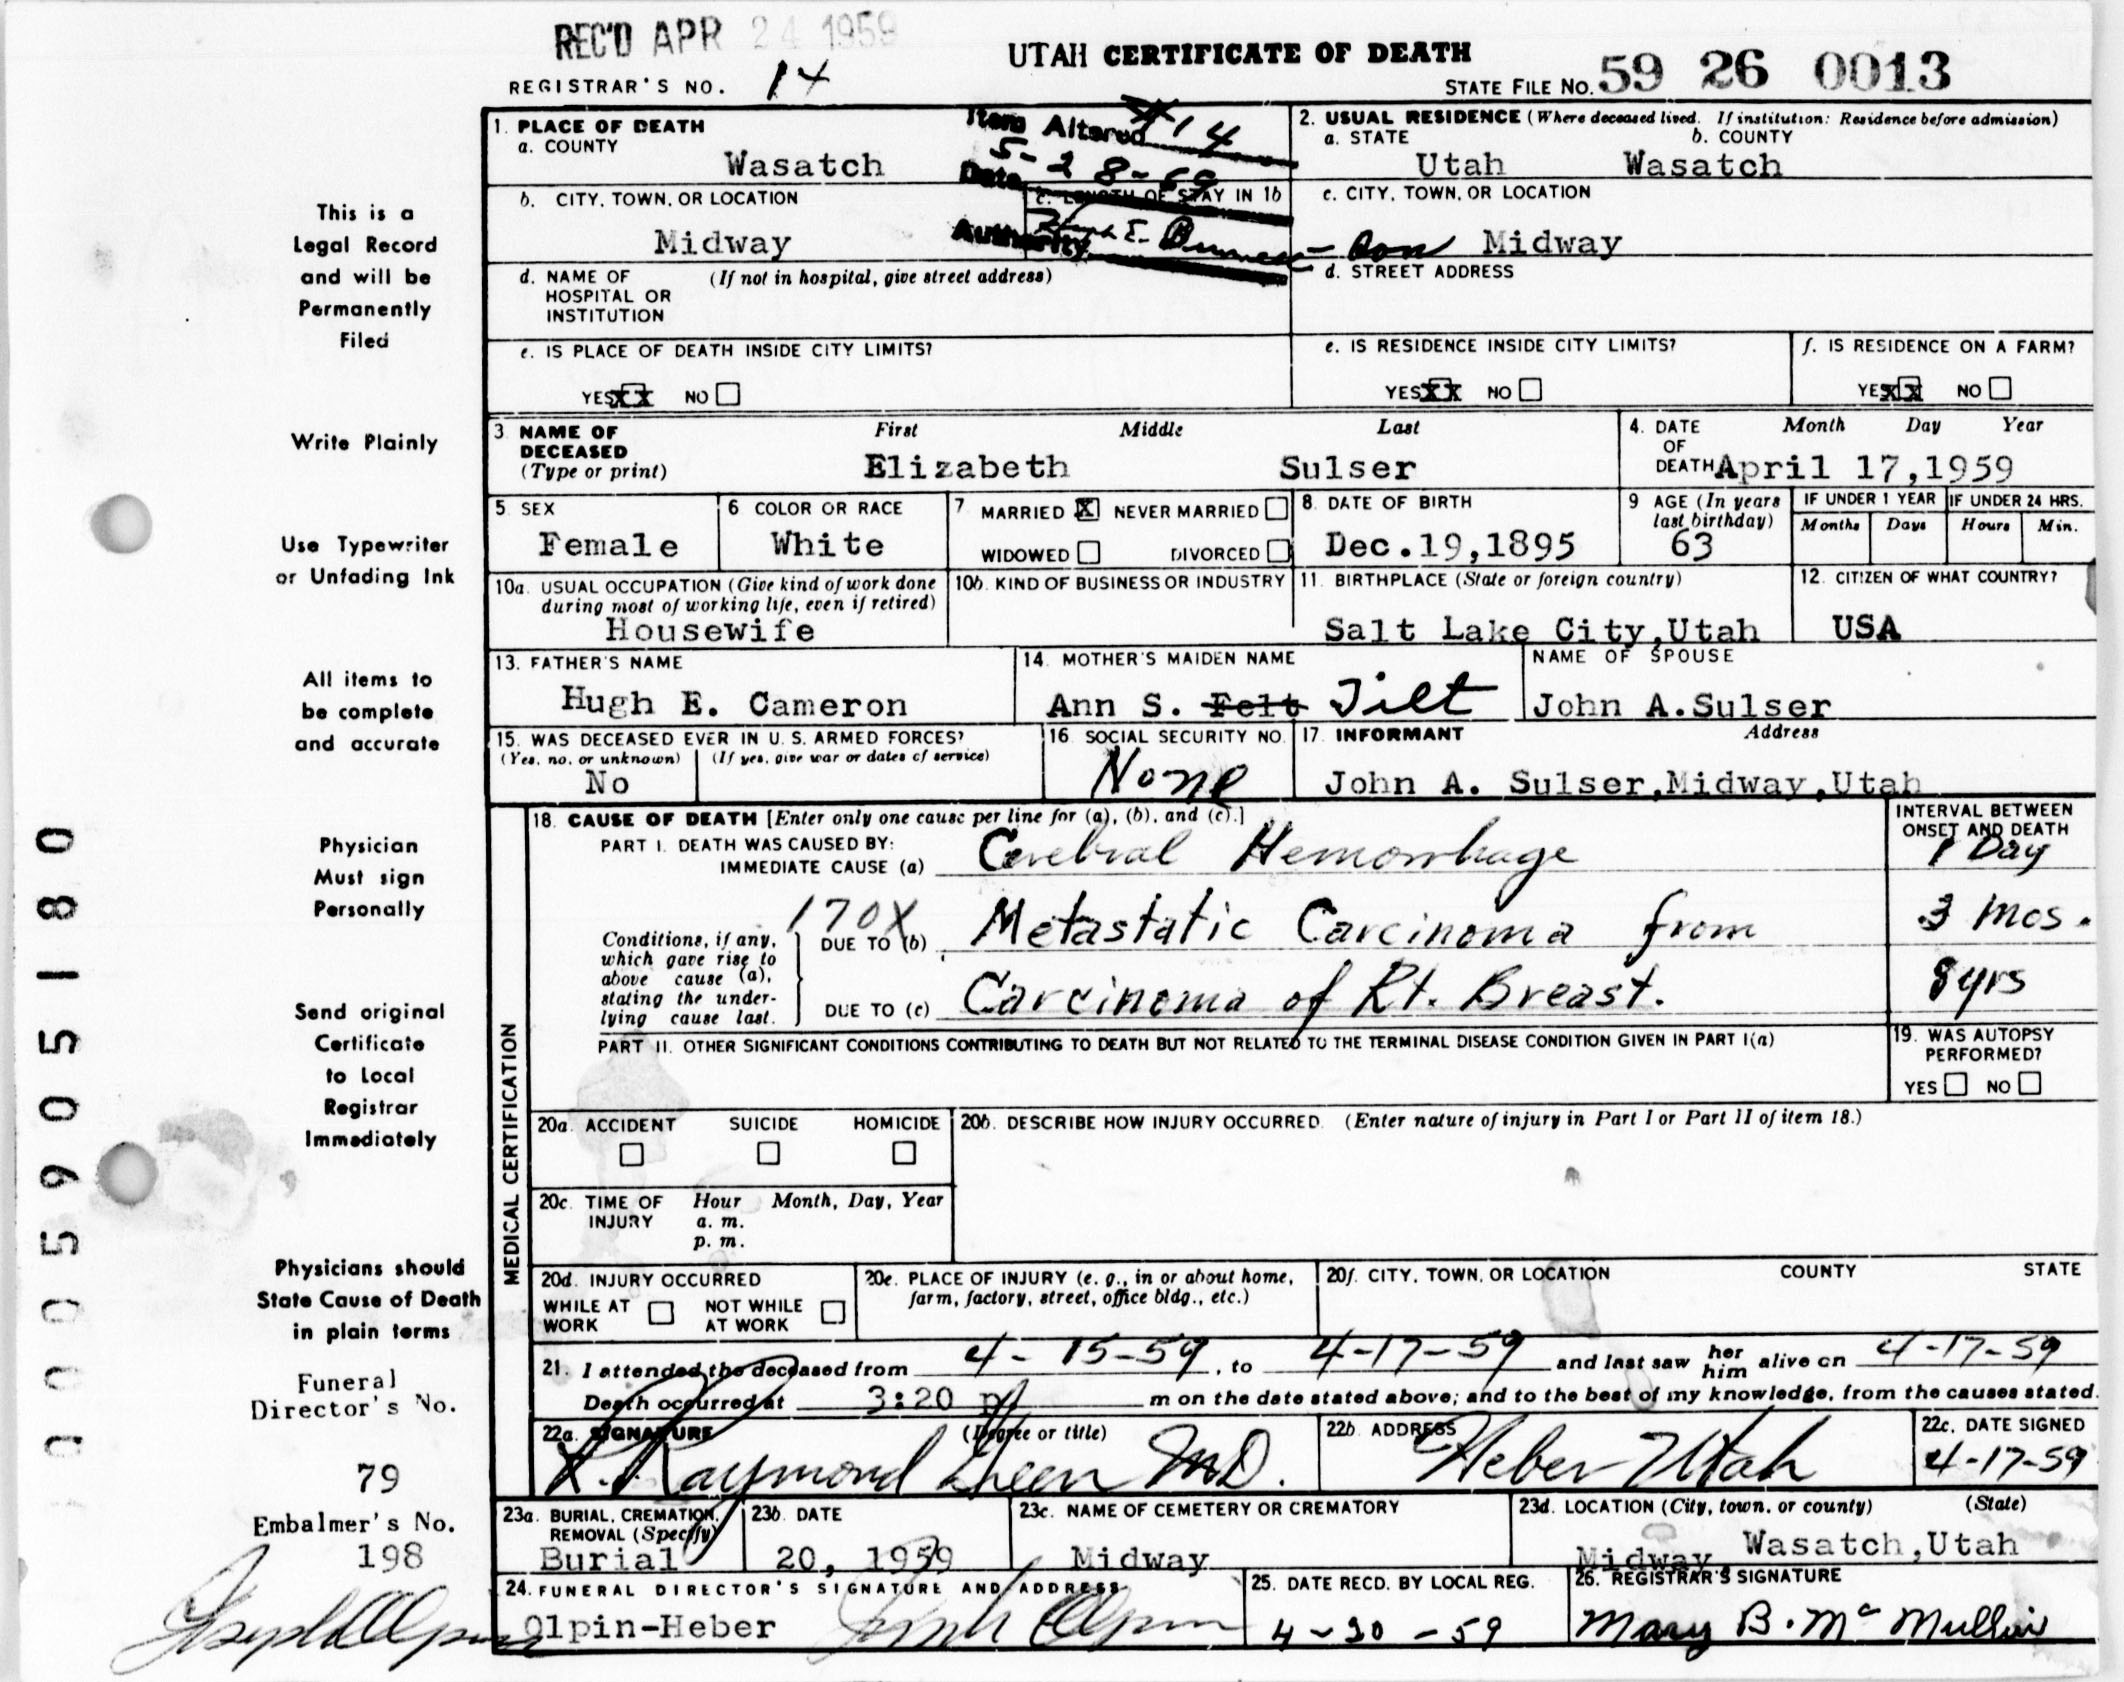 REC'D APR 24 1959
UTAH CERTIFICATE OF DEATH
REGISTRAR'S NO. 14
STATE FILE NO. 59 26 0013
This is a
Legal Record
and will be
Permanently
Filed
Write Plainly
Use Typewriter
or Unfading Ink
All items to
be complete
and accurate
Physician
Must sign
Personally
Send original
Certificate
to Local
Registrar
Immediately
Physicians should
State Cause of Death
in plain terms
Funeral
Director's No.
79
Embalmer's No.
198
Joseph Olpin
0005905180
Item Altered #14
Date 5-28-69
Authority
1. PLACE OF DEATH
a. COUNTY
Wasatch
b. CITY, TOWN, OR LOCATION
Midway
c. LENGTH OF STAY IN 1b
d. NAME OF HOSPITAL OR INSTITUTION (If not in hospital, give street address)
e. IS PLACE OF DEATH INSIDE CITY LIMITS?
YES XX NO
2. USUAL RESIDENCE (Where deceased lived. If institution: Residence before admission)
a. STATE b. COUNTY
Utah Wasatch
c. CITY, TOWN, OR LOCATION
Midway
d. STREET ADDRESS
e. IS RESIDENCE INSIDE CITY LIMITS?
YES XX NO
f. IS RESIDENCE ON A FARM?
YES XX NO
3 NAME OF DECEASED (Type or print)
First Middle Last
Elizabeth Sulser
4. DATE OF DEATH Month Day Year
April 17,1959
5 SEX
Female
6 COLOR OR RACE
White
7 MARRIED X NEVER MARRIED
WIDOWED DIVORCED
8 DATE OF BIRTH
Dec.19,1895
9 AGE (In years last birthday)
63
IF UNDER 1 YEAR IF UNDER 24 HRS.
Months Days Hours Min.
10a. USUAL OCCUPATION (Give kind of work done
during most of working life, even if retired)
Housewife
10b. KIND OF BUSINESS OR INDUSTRY
11. BIRTHPLACE (State or foreign country)
Salt Lake City,Utah
12. CITIZEN OF WHAT COUNTRY?
USA
13. FATHER'S NAME
Hugh E. Cameron
14. MOTHER'S MAIDEN NAME
Ann S. Felt Tilt
NAME OF SPOUSE
John A.Sulser
15. WAS DECEASED EVER IN U. S. ARMED FORCES?
(Yes, no, or unknown) (If yes, give war or dates of service)
No
16. SOCIAL SECURITY NO.
None
17. INFORMANT Address
John A. Sulser,Midway,Utah
MEDICAL CERTIFICATION
18. CAUSE OF DEATH [Enter only one cause per line for (a), (b), and (c).]
INTERVAL BETWEEN
ONSET AND DEATH
PART I. DEATH WAS CAUSED BY:
IMMEDIATE CAUSE (a) Cerebral Hemorrhage 1 Day
170X
Conditions, if any,
which gave rise to
above cause (a),
stating the under-
lying cause last.
DUE TO (b) Metastatic Carcinoma from 3 mos.
DUE TO (c) Carcinoma of Rt. Breast. 8 yrs
PART II. OTHER SIGNIFICANT CONDITIONS CONTRIBUTING TO DEATH BUT NOT RELATED TO THE TERMINAL DISEASE CONDITION GIVEN IN PART I(a)
19. WAS AUTOPSY
PERFORMED?
YES NO
20a. ACCIDENT SUICIDE HOMICIDE
20b. DESCRIBE HOW INJURY OCCURRED. (Enter nature of injury in Part I or Part II of item 18.)
20c. TIME OF INJURY Hour Month, Day, Year
a. m.
p. m.
20d. INJURY OCCURRED
WHILE AT WORK NOT WHILE AT WORK
20e. PLACE OF INJURY (e. g., in or about home,
farm, factory, street, office bldg., etc.)
20f. CITY, TOWN, OR LOCATION COUNTY STATE
21. I attended the deceased from 4-15-59, to 4-17-59 and last saw her him alive on 4-17-59
Death occurred at 3:20 p m on the date stated above; and to the best of my knowledge, from the causes stated.
22a. SIGNATURE (Degree or title)
R. Raymond Green MD.
22b. ADDRESS
Heber Utah
22c. DATE SIGNED
4-17-59
23a. BURIAL, CREMATION,
REMOVAL (Specify)
Burial
23b. DATE
20, 1959
23c. NAME OF CEMETERY OR CREMATORY
Midway
23d. LOCATION (City, town, or county) (State)
Midway, Wasatch,Utah
24. FUNERAL DIRECTOR'S SIGNATURE AND ADDRESS
Olpin-Heber
25. DATE RECD. BY LOCAL REG.
4-20-59
26. REGISTRAR'S SIGNATURE
Mary B. McMullin